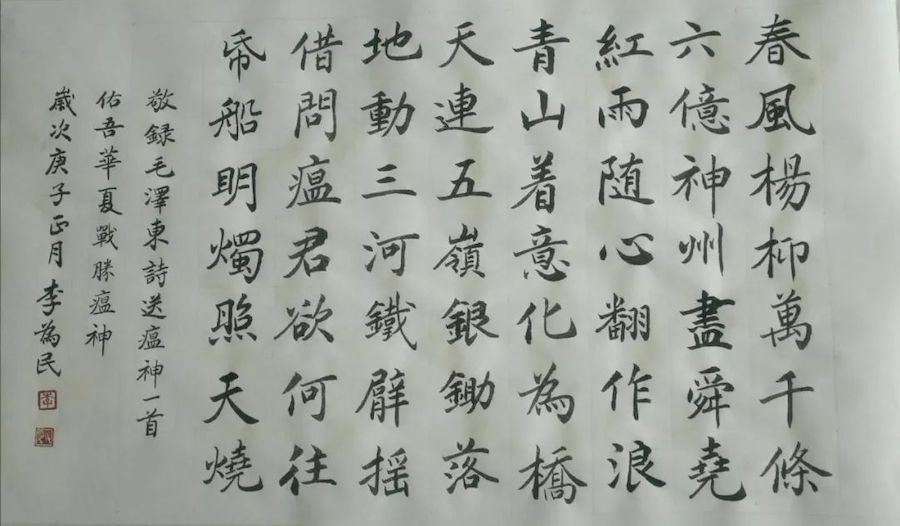 春風楊柳萬千條
六億神州盡舜堯
紅雨随心翻作浪
青山着意化為橋
天連五嶺銀鋤落
地動三河鐵臂摇
借問瘟君欲何往
帋船明燭照天燒
敬録毛澤東詩送瘟神一首
佑吾華夏戰勝瘟神
歲次庚子正月 李為民